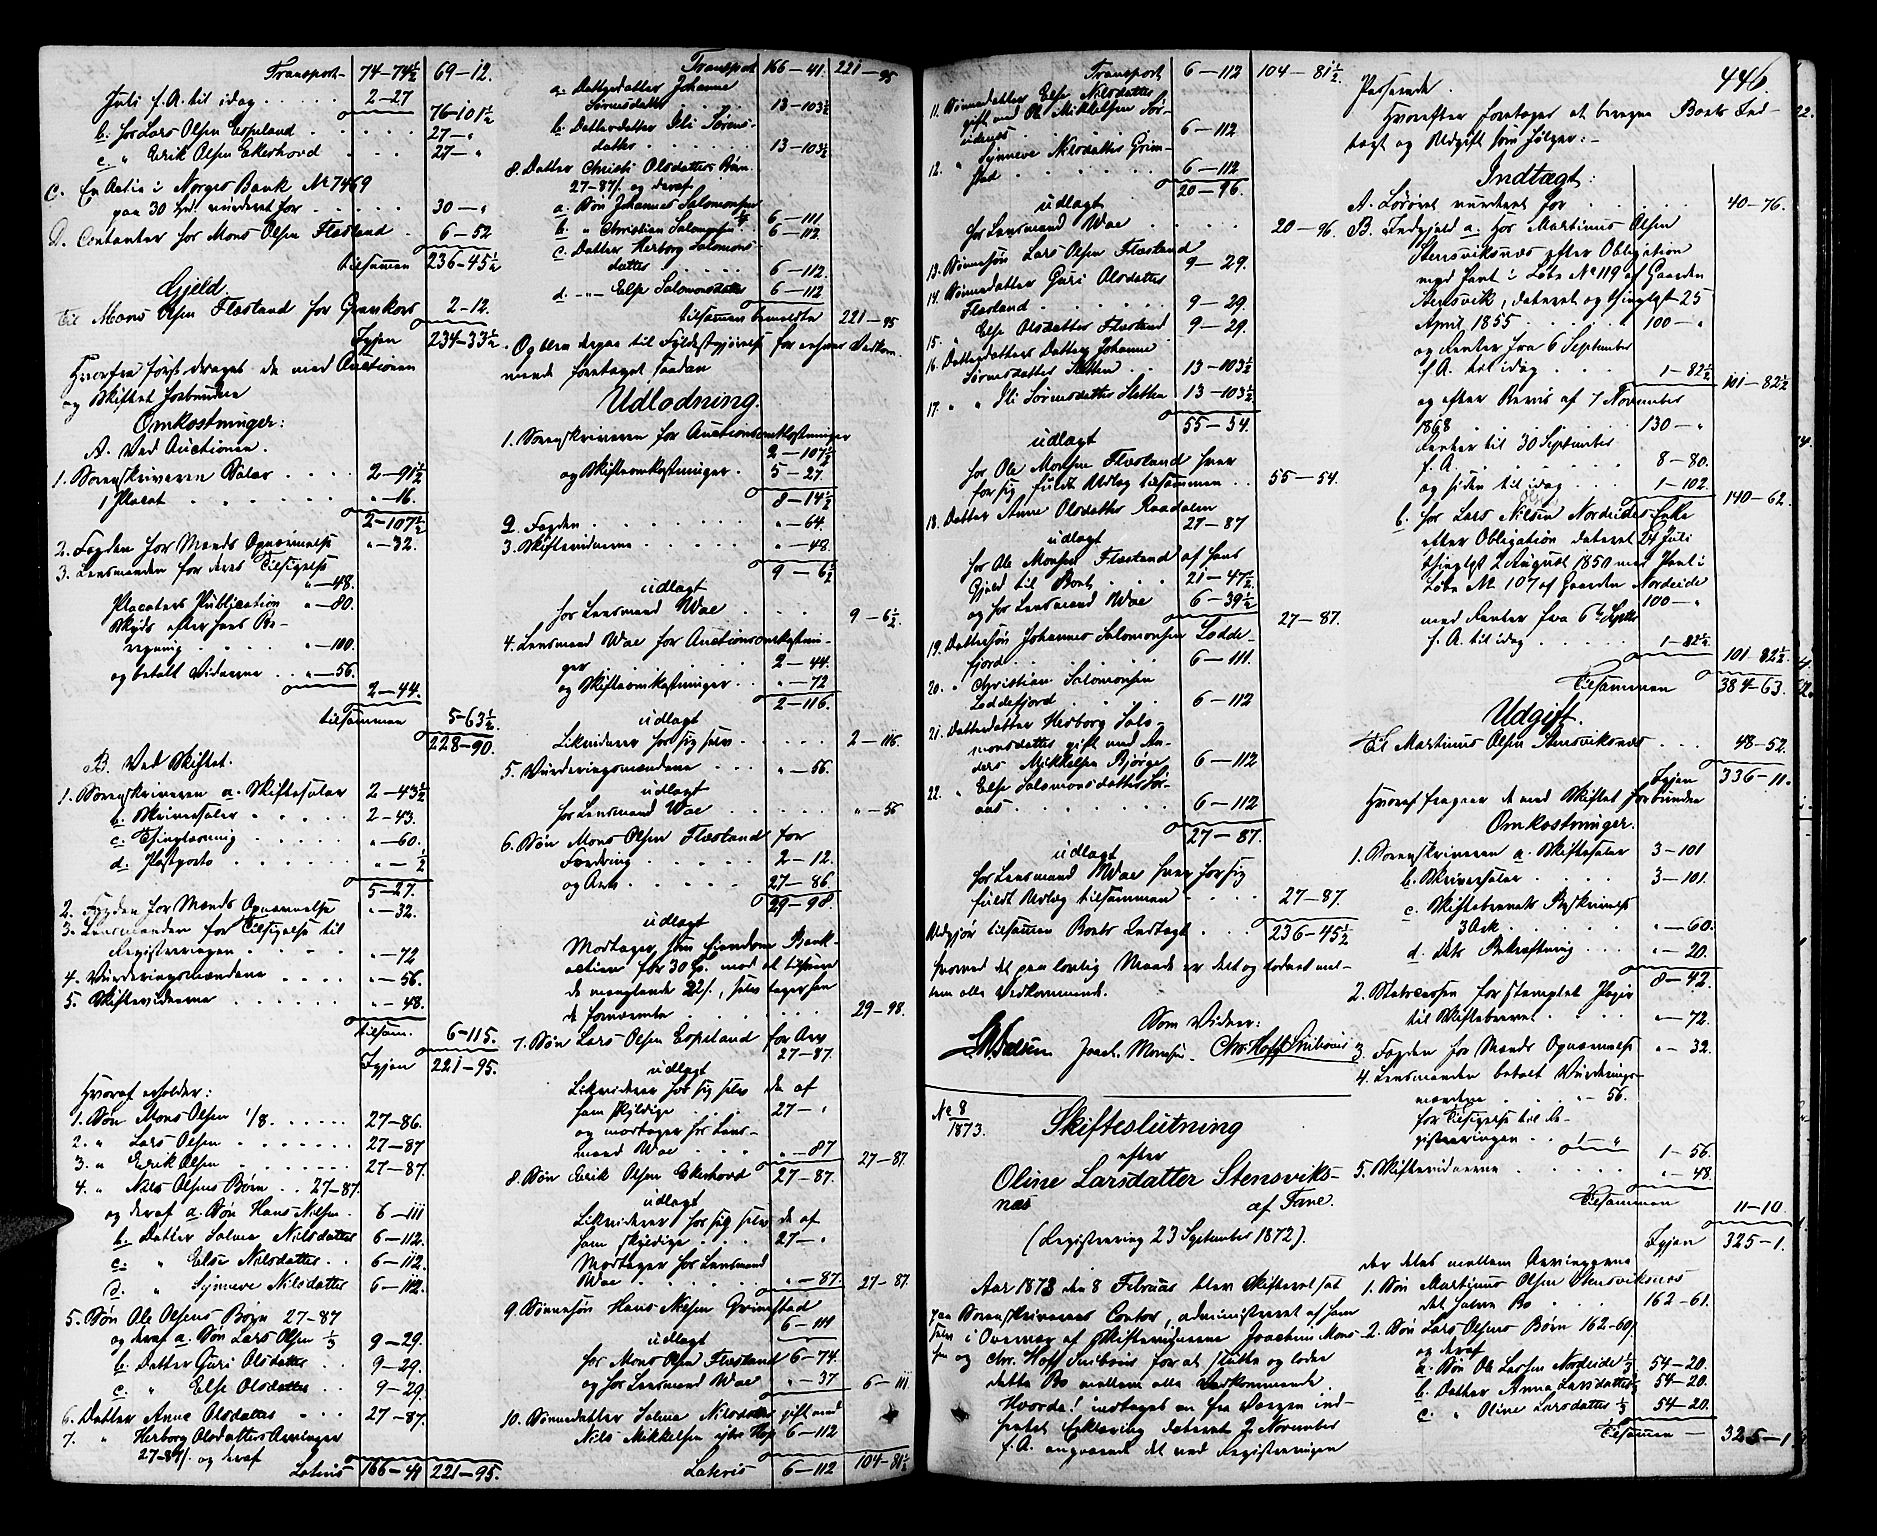 Transport 74-74½ 69-12.
Juli f. A. til idag 2-27
76-101½
b. hos Lars Olsen Espeland 27-"
c. " Erik Olsen Ekerhovd 27-"
C. En Actie i Norges Bank No 7469
paa 30 Spd. vurderet for 30-"
D. Contanter hos Mons Olsen Flæsland 6-52
tilsammen 236-45½
Gjeld.
til Mons Olsen Flæsland for Gravkors 2-12.
Igjen 234-33½
Hvorfra først drages de med Auctionen
og Skiftet forbundne
Omkostninger:
A. Ved Auctionen.
1. Sorenskriveren Salær 2-91½
1 Placat " -16.
2-107½
2. Fogden for Mænds Opnævnelse "-32.
3. Lensmanden for deres Tilsigelse "-48.
Placaters Publication "-80.
Skyds efter hans Re-
regning "-100.
og betalt Vidnerne "-56.
2-44.
tilsammen 5-63½
228-90.
B. Ved Skiftet.
1. Sorenskriveren a. Skiftesalær 2-43½
b. Skriversalær 2-43.
c. Thinglæsning "-60.
d. Postporto "-½
5-27.
2. Fogden for Mænds Opnævnelse "-32.
3. Lensmanden for Tilsigelse til
Registreringen "-72
4. Vurderingsmændene "-56.
5. Skiftevidnerne "-48.
tilsam. 6-115.
Igjen 221-95.
Hvoraf erholder:
1. Søn Mons Olsen 1/8. 27-86.
2. " Lars Olsen 27-87
3. " Erik Olsen 27-87.
4. " Nils Olsens Børn 27-87.
og deraf a. Søn Hans Nilsen 6-111
b. Datter Salma Nilsdatter 6-112.
c. " Else Nilsdatter 6-112.
d. " Synneve Nilsdatter 6-112.
5. Søn Ole Olsens Børn 27-87
og deraf a. Søn Lars Olsen ⅓ 9-29.
b. Datter Guri Olsdatter 9-29.
c. " Else Olsdatter 9-29.
6. Datter Anna Olsdatter 27-87.
7. " Herborg Olsdatters Arvinger
27-87/. og deraf
Lateris 166-41 221-95.
Transport 166-41 221-95
a. Datterdatter Johanne
Sørensdatter 13-103½
b. Datterdatter Eli Sørens-
datter 13-103½
8. Datter Christi Olsdatters Børn
27-87/. og deraf
a. Søn Johannes Salomonsen 6-111
b. " Christian Salomonsen 6-112.
c. Datter Herborg Salomons-
datter 6-112.
d. -"- Else Salomonsdatter 6-112
tilsammen bemeldte 221-95
Og blev derpaa til Fyldestgjørelse for enhver Vedkom-
mende foretaget saadan
Udlodning.
1. Sorenskriveren for Auctionsomkostninger
2-107½
og Skifteomkostninger 5-27
8-14½
2. Fogden "-64.
3. Skiftevidnerne "-48.
9-6½
udlagt
hos Lensmand Wae 9-6½.
4. Lensmand Wae for Auctionsomkostnin-
ger 2-44.
og Skifteomkostninger "-72
2-116.
udlagt
Likviderer hos sig selv 2-116.
5. Vurderingsmændene "-56.
udlagt
hos Lensmand Wae "-56
6. Søn Mons Olsen Flæsland for
Fordring 2-12.
og Arv 27-86
29-98
udlagt
Modtager som Eiendom Bank-
actien for 30 Sp. mod at tilsvare
de manglende 22/., selv tager han
de fornævnte 29-98.
7. Søn Lars Olsen Espeland for Arv
27-87.
udlagt
Likviderer hos sig selv de af
ham skyldige 27-"
og modtager hos Lens-
mand Wae "-87
27-87.
8. Søn Erik Olsen Ekerhovd 27-87.
udlagt
Likviderer hos sig selv de af
ham skyldige 27-"
Modtager hos Lensmand
Wae "-87. 27-87.
9. Sønnesøn Hans Nilsen Grimstad
6-111
udlagt
hos Mons Olsen Flæsland 6-74.
og hos Lensmand Wae "-37 6-111
10. Sønnedatter Salma Nilsdatter gift med
Nils Mikkelsen Hop 6-112
Lateris 6-112 104-81½
Transport 6-112 104-81½
11. Sønnedatter Else Nilsdatter
gift med Ole Mikkelsen Sør-
eidnes 6-112
12. " Synneve Nilsdatter Grim-
stad 6-112
20-96.
udlagt
hos Lensmand Wae 20-96
13. Sønnesøn Lars Olsen Flæsland
9-29.
14. Sønnedatter Guri Olsdatter
Flæsland 9-29.
15. " Else Olsdatter Flæsland 9-29.
16. Datterdatters Datter Johanne
Sørensdatter Sletten 13-103½
17. " " Eli Sørensdatter Sletten 13-103½
55-54.
udlagt
hos Ole Monsen Flæsland hver
for sig fuldt Udlæg tilsammen 55-54.
18. Datter Anne Olsdatter Raadalen
27-87
udlagt
hos Ole Monsen Flæsland af hans
Gjeld til Boet 21-47½
og hos Lensmand Wae 6-39½
27-87.
19. Dattersøn Johannes Salomonsen Lodde-
fjord 6-111.
20. " Christian Salomonsen
Loddefjord 6-112
21. Datterdatter Herborg Salo-
monsdatter gift med An-
ders Mikkelsen Bjørge 6-112
22. " Else Salomonsdatter Sør-
aas 6-112
27-87.
udlagt
hos Lensmand Wae hver for sig
fuldt Udlæg tilsammen 27-87.
Udgjør tilsammen Boets Indtægt 236-45½
hvormed det paa lovlig Maade er delt og loddet mel-
lem alle Vedkommende.
Som Vidner:
Joach. Monsen Chr. Hoff
No 8
1873.
Skifteslutning
efter
Oline Larsdatter Stensviks-
næs af Fane.
(Registrering 23 September 1872).
Aar 1873 den 8 Februar blev Skifteret sat
paa Sorenskriverens Contor, administreret af ham
selv i Overvær af Skiftevidnerne Joachim Mon-
sen og Chr. Hoff for at slutte og lodde
dette Bo mellem alle Vedkommende
Hvorda! indtages en fra Værgen ind-
hentet Erklæring dateret 2 November
f. A. angaaende det ved Registreringen
446.
Passerede.
Hvorefter foretages at beregne Boets Ind-
tægt og Udgift som følger:
Indtægt:
A. Løsøret vurderet for 40-76.
B. Indgjeld a: hos Martinus Olsen
Stensviksnæs efter Obligation
med Pant i Løbe No 119 af Gaarden
Stensvik, dateret og thinglyst 25
April 1855 100-"
og Renter fra 6 September
f. A. til idag 1-82½ 101-82½
og efter Bevis af 7 November
1868 130-"
Renter til 30 September
f. A. 8-80.
og siden til idag 1-102.
140-62.
b. hos Lars Nilsen Nordeides Enke
efter Obligation dateret 24 Juli
thinglyst 2 August 1850 med Pant i
Løbe No 107 af Gaarden Nordeide
100-"
med Renter fra 6te Septbr
f. A. til idag 1-82½
101-82½
Tilsammen 384-63.
Udgift.
til Martinus Olsen Stensviksnæs 48-52.
Igjen 336-11.
Hvoraf fragaar de med Skiftet forbundne
Omkostninger.
1. Sorenskriveren a. Skiftesalær 3-101
b. Skriversalær 3-101.
c. Skiftebrevets Beskrivelse
3 Ark "-60.
d. dets Bekræftning "-20.
8-42.
2. Statscassen for stemplet Papir
til Skiftebrevet "-72.
3. Fogden for Mænds Opnævnelse "-32
4. Lensmanden betalt Vurderings-
mændene "-56.
for Tilsigelse til Re-
gistreringen 1-"
1-56.
5. Skiftevidnerne "-48.
Tilsammen 11-10.
Igjen 325-1.
der deles mellem Arvingerne
1. Søn Martinus Olsen Stensviksnæs
det halve Bo 162-61.
2. Søn Lars Olsens Børn 162-60/.
og deraf
a. Søn Ole Larsen Nordeide ⅓ 54-20.
b. Datter Anna Larsdatter ⅓ 54-20.
c. " Oline Larsdatter ⅓ 54-20.
Tilsammen 325-1.